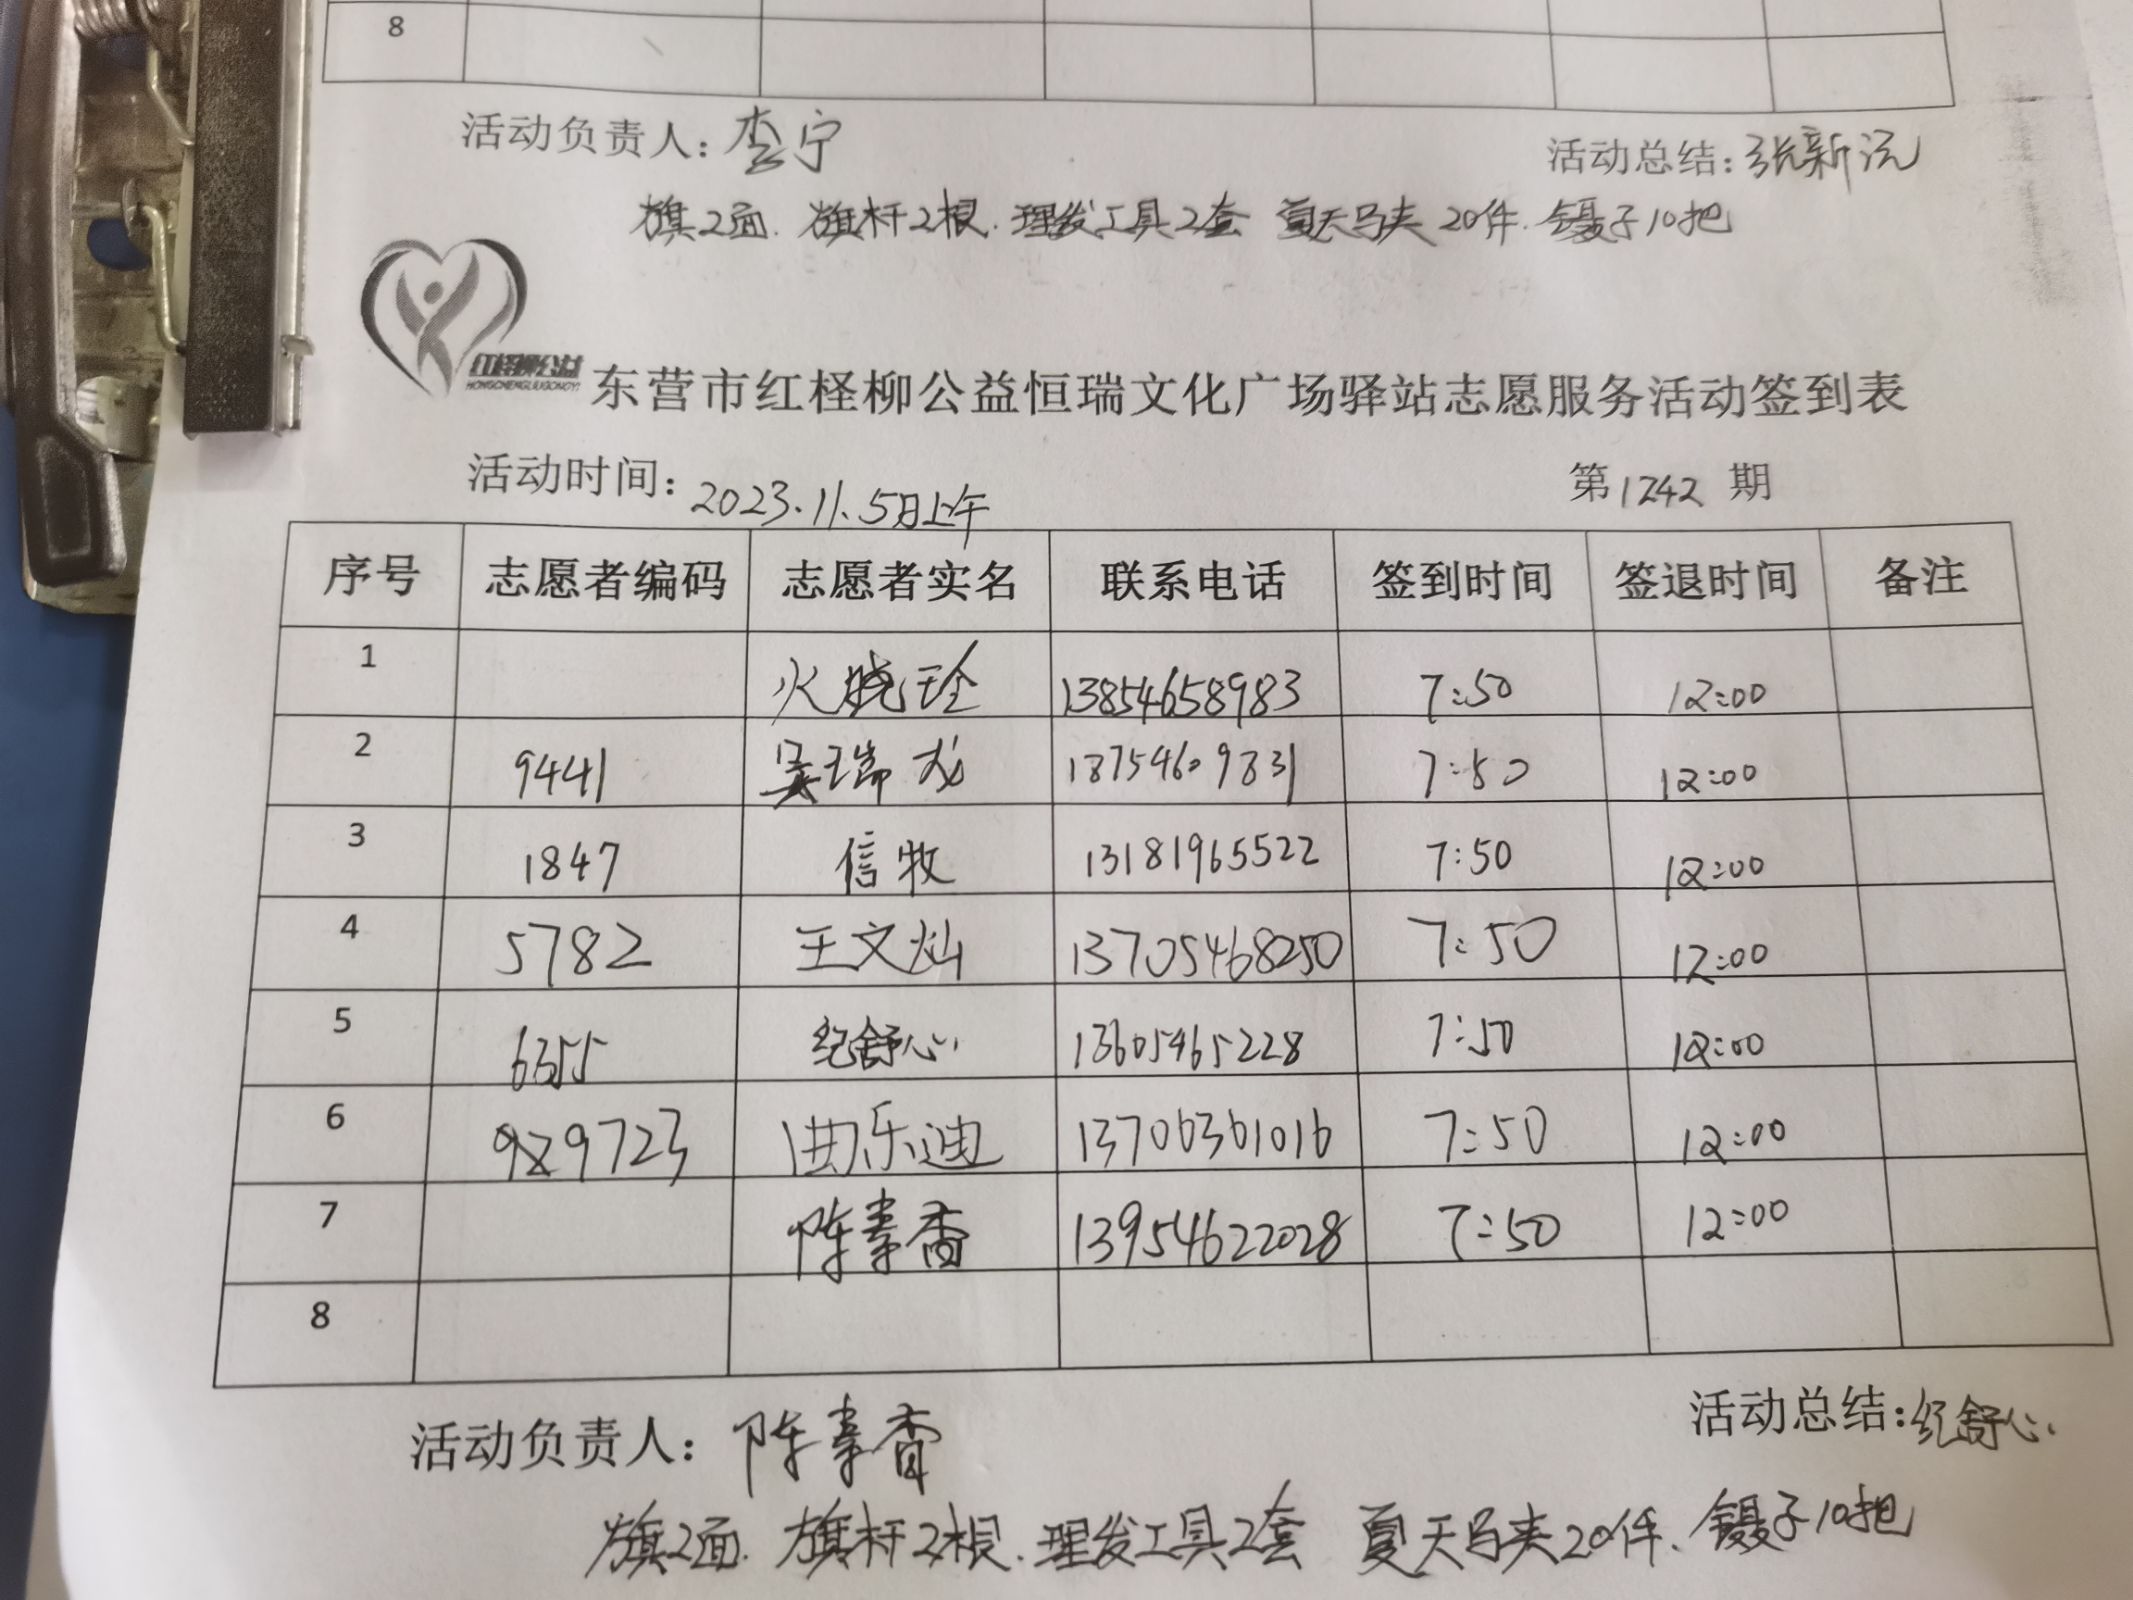 8
活动负责人：李宁 活动总结：张新沅
旗2面. 旗杆2根. 理发工具2套 夏天马夹20件. 镊子10把
红柽柳公益
HONGCHENGLIUGONGYI
东营市红柽柳公益恒瑞文化广场驿站志愿服务活动签到表
活动时间：2023.11.5日上午 第1242期
序号 志愿者编码 志愿者实名 联系电话 签到时间 签退时间 备注
1 火晓玲 13854658983 7:50 12:00
2 9441 吴瑞龙 18754609831 7:50 12:00
3 1847 信牧 13181965522 7:50 12:00
4 5782 王文灿 13705468250 7:50 12:00
5 6355 纪舒心 13605465228 7:50 12:00
6 929723 曲乐迪 13706361016 7:50 12:00
7 陈素香 13954622028 7:50 12:00
8
活动负责人：陈素香 活动总结：纪舒心
旗2面. 旗杆2根. 理发工具2套 夏天马夹20件. 镊子10把